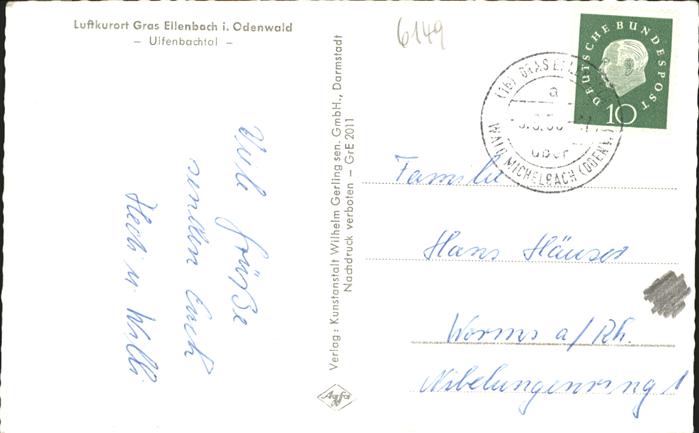 Luftkurort Gras Ellenbach i. Odenwald
– Ulfenbachtal –
6149
DEUTSCHE BUNDESPOST
10
(16) GRAS ELL
a
über
WALD MICHELBACH (ODENW.)
Viele Grüße
senden Euch
Hedi u. Willi
Verlag: Kunstanstalt Wilhelm Gerling sen. GmbH., Darmstadt
Nachdruck verboten – GrE 2011
Agfa
Familie
Hans Häuser
Worms a/Rh.
Nibelungenring 1